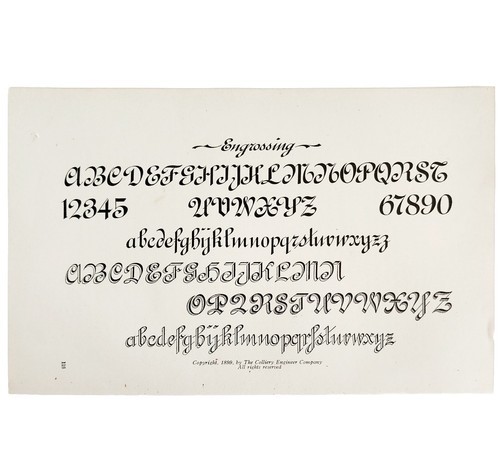 Engrossing
ABCDEFGHIJKLMNOPQRST
12345 UVWXYZ 67890
abcdefghijklmnopqrsturvwxyzz
ABCDEFGHIJKLMN
OPQRSTUVWXYZ
abcdefghijklmnopqrssturvwxyz
Copyright, 1890, by The Colliery Engineer Company
All rights reserved